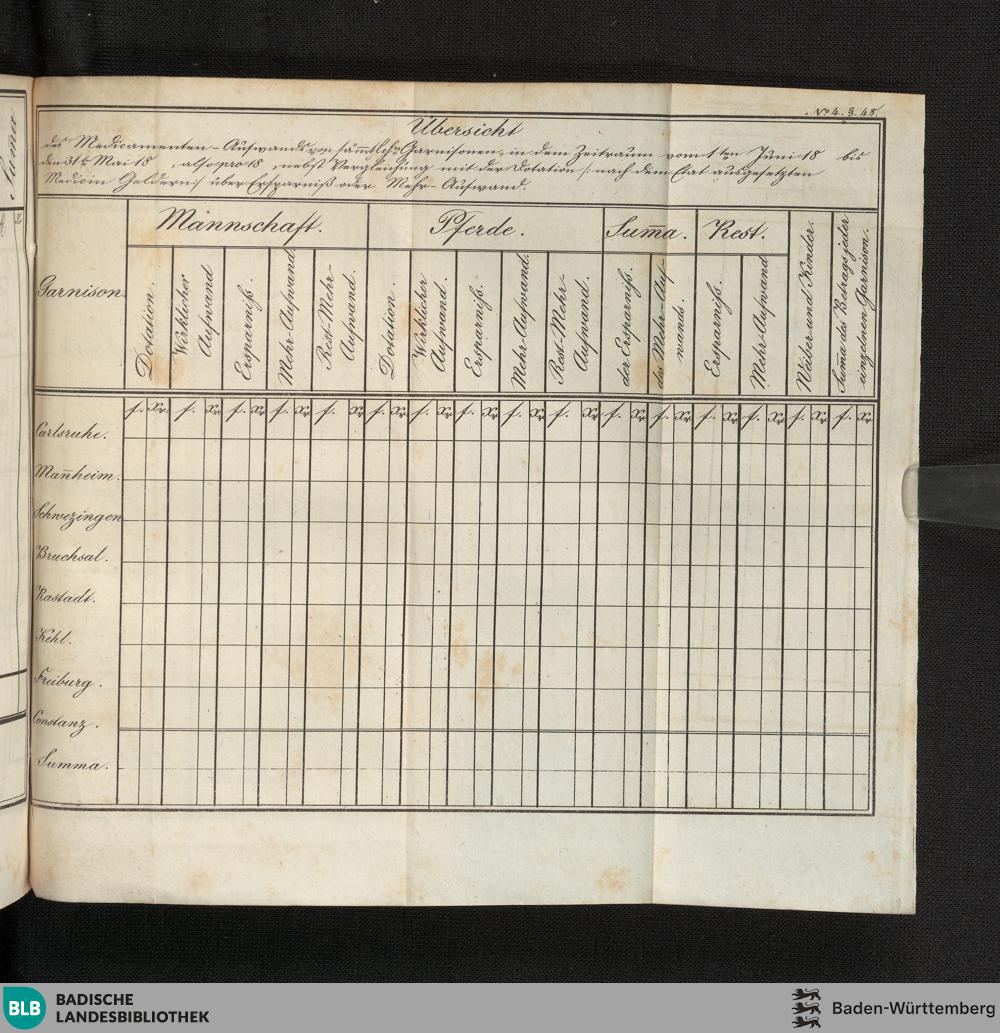 Suma
No 4. §. 48.
Übersicht
des Medicamenten-Aufwands von sämtlichen Garnisonen, in dem Zeitraum vom 1ten Juni 18 bis
den 31t Mai 18 , also pro 18 , nebst Vergleichung mit der Dotation /: nach dem Etat ausgesetzten
Medicin Geldern :/ über Ersparniß oder Mehr-Aufwand.
Garnison.
Mannschaft.
Pferde.
Sum̄a.
Rest.
Dotation.
Wirklicher
Aufwand
Ersparniß.
Mehr-Aufwand
Rest-Mehr-
Aufwand.
Dotation.
Wirklicher
Aufwand.
Ersparniß.
Mehr-Aufwand.
Rest-Mehr-
Aufwand.
der Ersparniß.
des Mehr-Auf-
wands.
Ersparniß.
Mehr-Aufwand
Weiber und Kinder.
Sum̄a des Betrags jeder
einzelnen Garnison.
f. Xr. f. Xr f. Xr f. Xr f. Xr f. Xr f. Xr f. Xr f. Xr f. Xr f. Xr f. Xr f. Xr f. Xr f. Xr f. Xr
Carlsruhe.
Man̄heim.
Schwezingen
Bruchsal.
Rastadt.
Kehl.
Freiburg.
Constanz.
Summa.
BLB
BADISCHE
LANDESBIBLIOTHEK
Baden-Württemberg